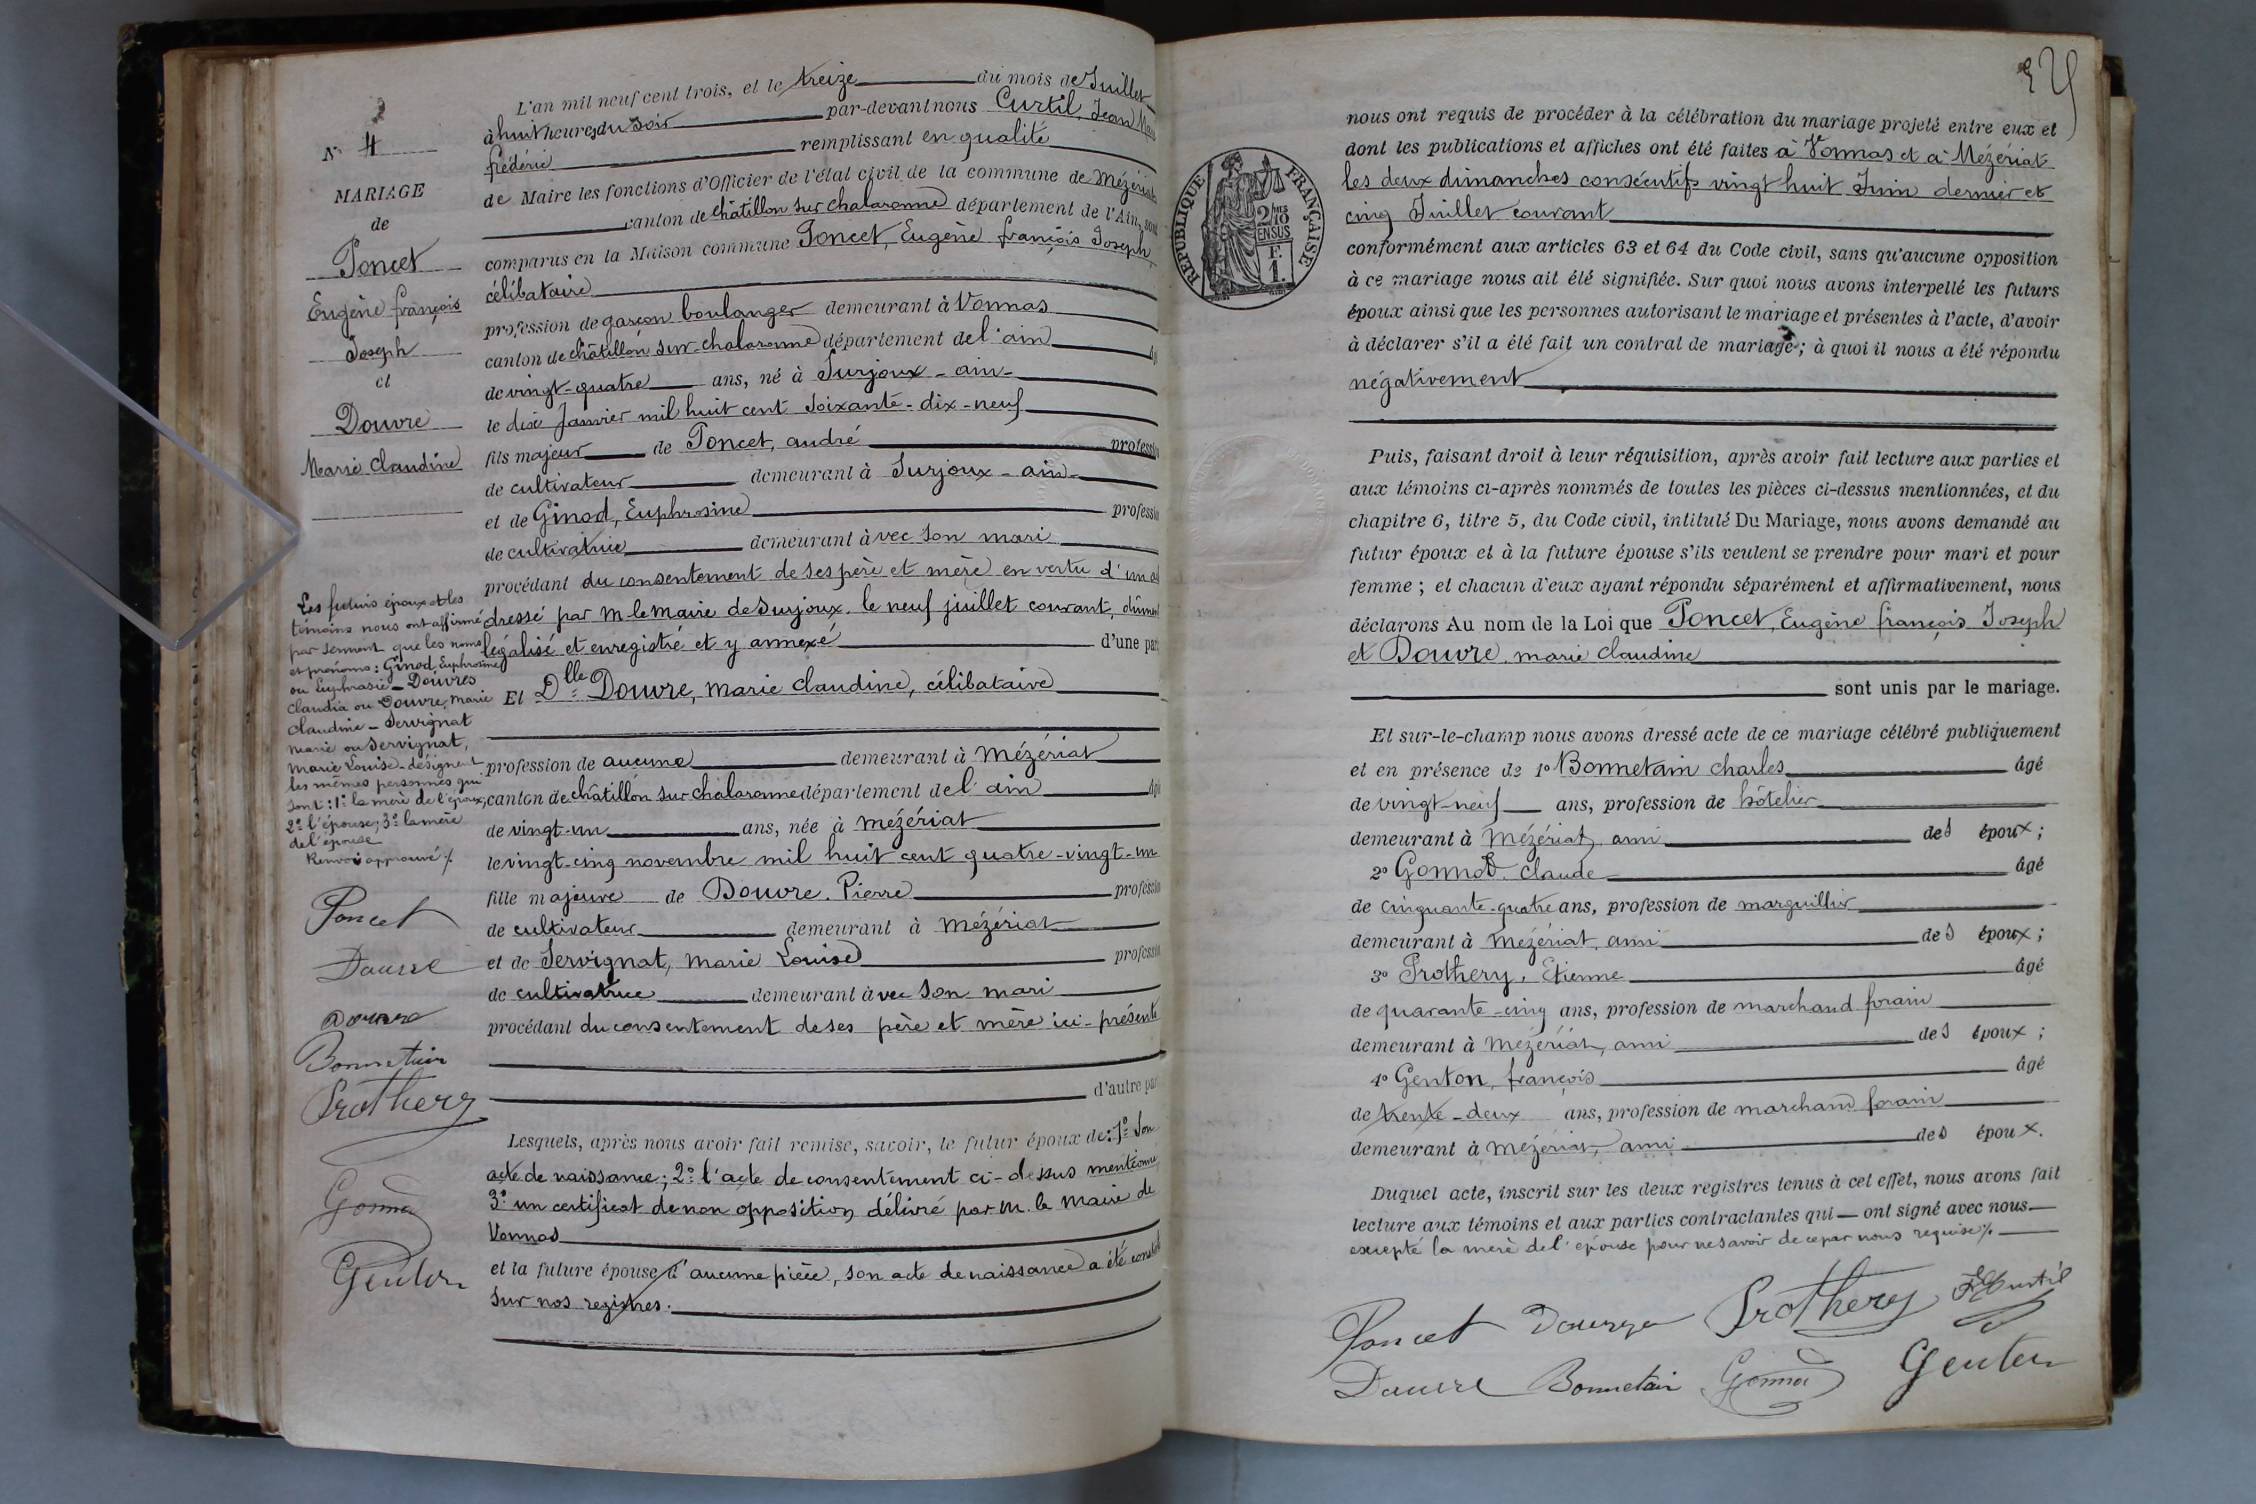 N° 4
MARIAGE
de
Poncet
Eugène françois
Joseph
et
Douvre
Marie Claudine
Les futurs époux et les
témoins nous ont affirmé
par serment que les noms
et prénoms: Ginod, Euphrosine
ou Euphrasie - Douvres
Claudia ou Douvre, Marie
Claudine - Servignat
Marie ou Servignat,
Marie Louise - désignent
les mêmes personnes qui
sont: 1° la mère de l'époux;
2° l'épouse; 3° la mère
de l'épouse
Renvoi approuvé ·/.
Poncet
Douvre
Douvre
Bonnetain
Prothery
Gonnod
Genton
L'an mil neuf cent trois, et le treize du mois de Juillet
à huit heures du soir par-devant nous Curtil, Jean
frédéric remplissant en qualité
de Maire les fonctions d'Officier de l'état civil de la commune de Mézériat
canton de châtillon sur chalaronne département de l'Ain, sont
comparus en la Maison commune Poncet, Eugène françois Joseph,
célibataire
profession de garçon boulanger demeurant à Vonnas
canton de châtillon sur chalaronne département de l'ain
de vingt-quatre ans, né à Surjoux - ain -
le dix Janvier mil huit cent soixante-dix-neuf
fils majeur de Poncet, andré profession
de cultivateur demeurant à Surjoux - ain -
et de Ginod, Euphrosine profession
de cultivatrice demeurant avec son mari
procédant du consentement de ses père et mère en vertu d'un
dressé par M. le Maire de Surjoux, le neuf juillet courant, dûment
légalisé et enregistré et y annexé d'une part
Et Dlle Douvre, marie claudine, célibataire
profession de aucune demeurant à Mézériat
canton de châtillon sur chalaronne département de l'ain
de vingt-un ans, née à Mézériat
le vingt-cinq novembre mil huit cent quatre-vingt-un
fille majeure de Douvre, Pierre profession
de cultivateur demeurant à Mézériat
et de Servignat, marie Louise profession
de cultivatrice demeurant avec son mari
procédant du consentement de ses père et mère ici-présents
d'autre part
Lesquels, après nous avoir fait remise, savoir, le futur époux de: 1° Son
acte de naissance; 2° l'acte de consentement ci-dessus mentionné
3° un certificat de non opposition délivré par M. le Maire de
Vonnas
et la future épouse d'aucune pièce, son acte de naissance a été constaté
sur nos registres.
nous ont requis de procéder à la célébration du mariage projeté entre eux et
dont les publications et affiches ont été faites à Vonnas et à Mézériat
les deux dimanches consécutifs vingt huit Juin dernier et
cinq Juillet courant
RÉPUBLIQUE FRANÇAISE
2/10
EN SUS
F.
1.
conformément aux articles 63 et 64 du Code civil, sans qu'aucune opposition
à ce mariage nous ait été signifiée. Sur quoi nous avons interpellé les futurs
époux ainsi que les personnes autorisant le mariage et présentes à l'acte, d'avoir
à déclarer s'il a été fait un contrat de mariage; à quoi il nous a été répondu
négativement
Puis, faisant droit à leur réquisition, après avoir fait lecture aux parties et
aux témoins ci-après nommés de toutes les pièces ci-dessus mentionnées, et du
chapitre 6, titre 5, du Code civil, intitulé Du Mariage, nous avons demandé au
futur époux et à la future épouse s'ils veulent se prendre pour mari et pour
femme; et chacun d'eux ayant répondu séparément et affirmativement, nous
déclarons Au nom de la Loi que Poncet, Eugène françois Joseph
et Douvre, marie claudine
sont unis par le mariage.
Et sur-le-champ nous avons dressé acte de ce mariage célébré publiquement
et en présence de 1° Bonnetain charles âgé
de vingt-neuf ans, profession de hôtelier
demeurant à Mézériat, ami des époux;
2° Gonnod claude âgé
de cinquante-quatre ans, profession de marguillier
demeurant à Mézériat, ami des époux;
3° Prothery, Etienne âgé
de quarante-cinq ans, profession de marchand forain
demeurant à Mézériat, ami des époux;
4° Genton, françois âgé
de trente-deux ans, profession de marchand forain
demeurant à Mézériat, ami des époux.
Duquel acte, inscrit sur les deux registres tenus à cet effet, nous avons fait
lecture aux témoins et aux parties contractantes qui ont signé avec nous
excepté la mère de l'épouse pour ne savoir de ce par nous requise ·/.
Poncet Douvre Prothery F Curtil
Douvre Bonnetain Gonnod Genton